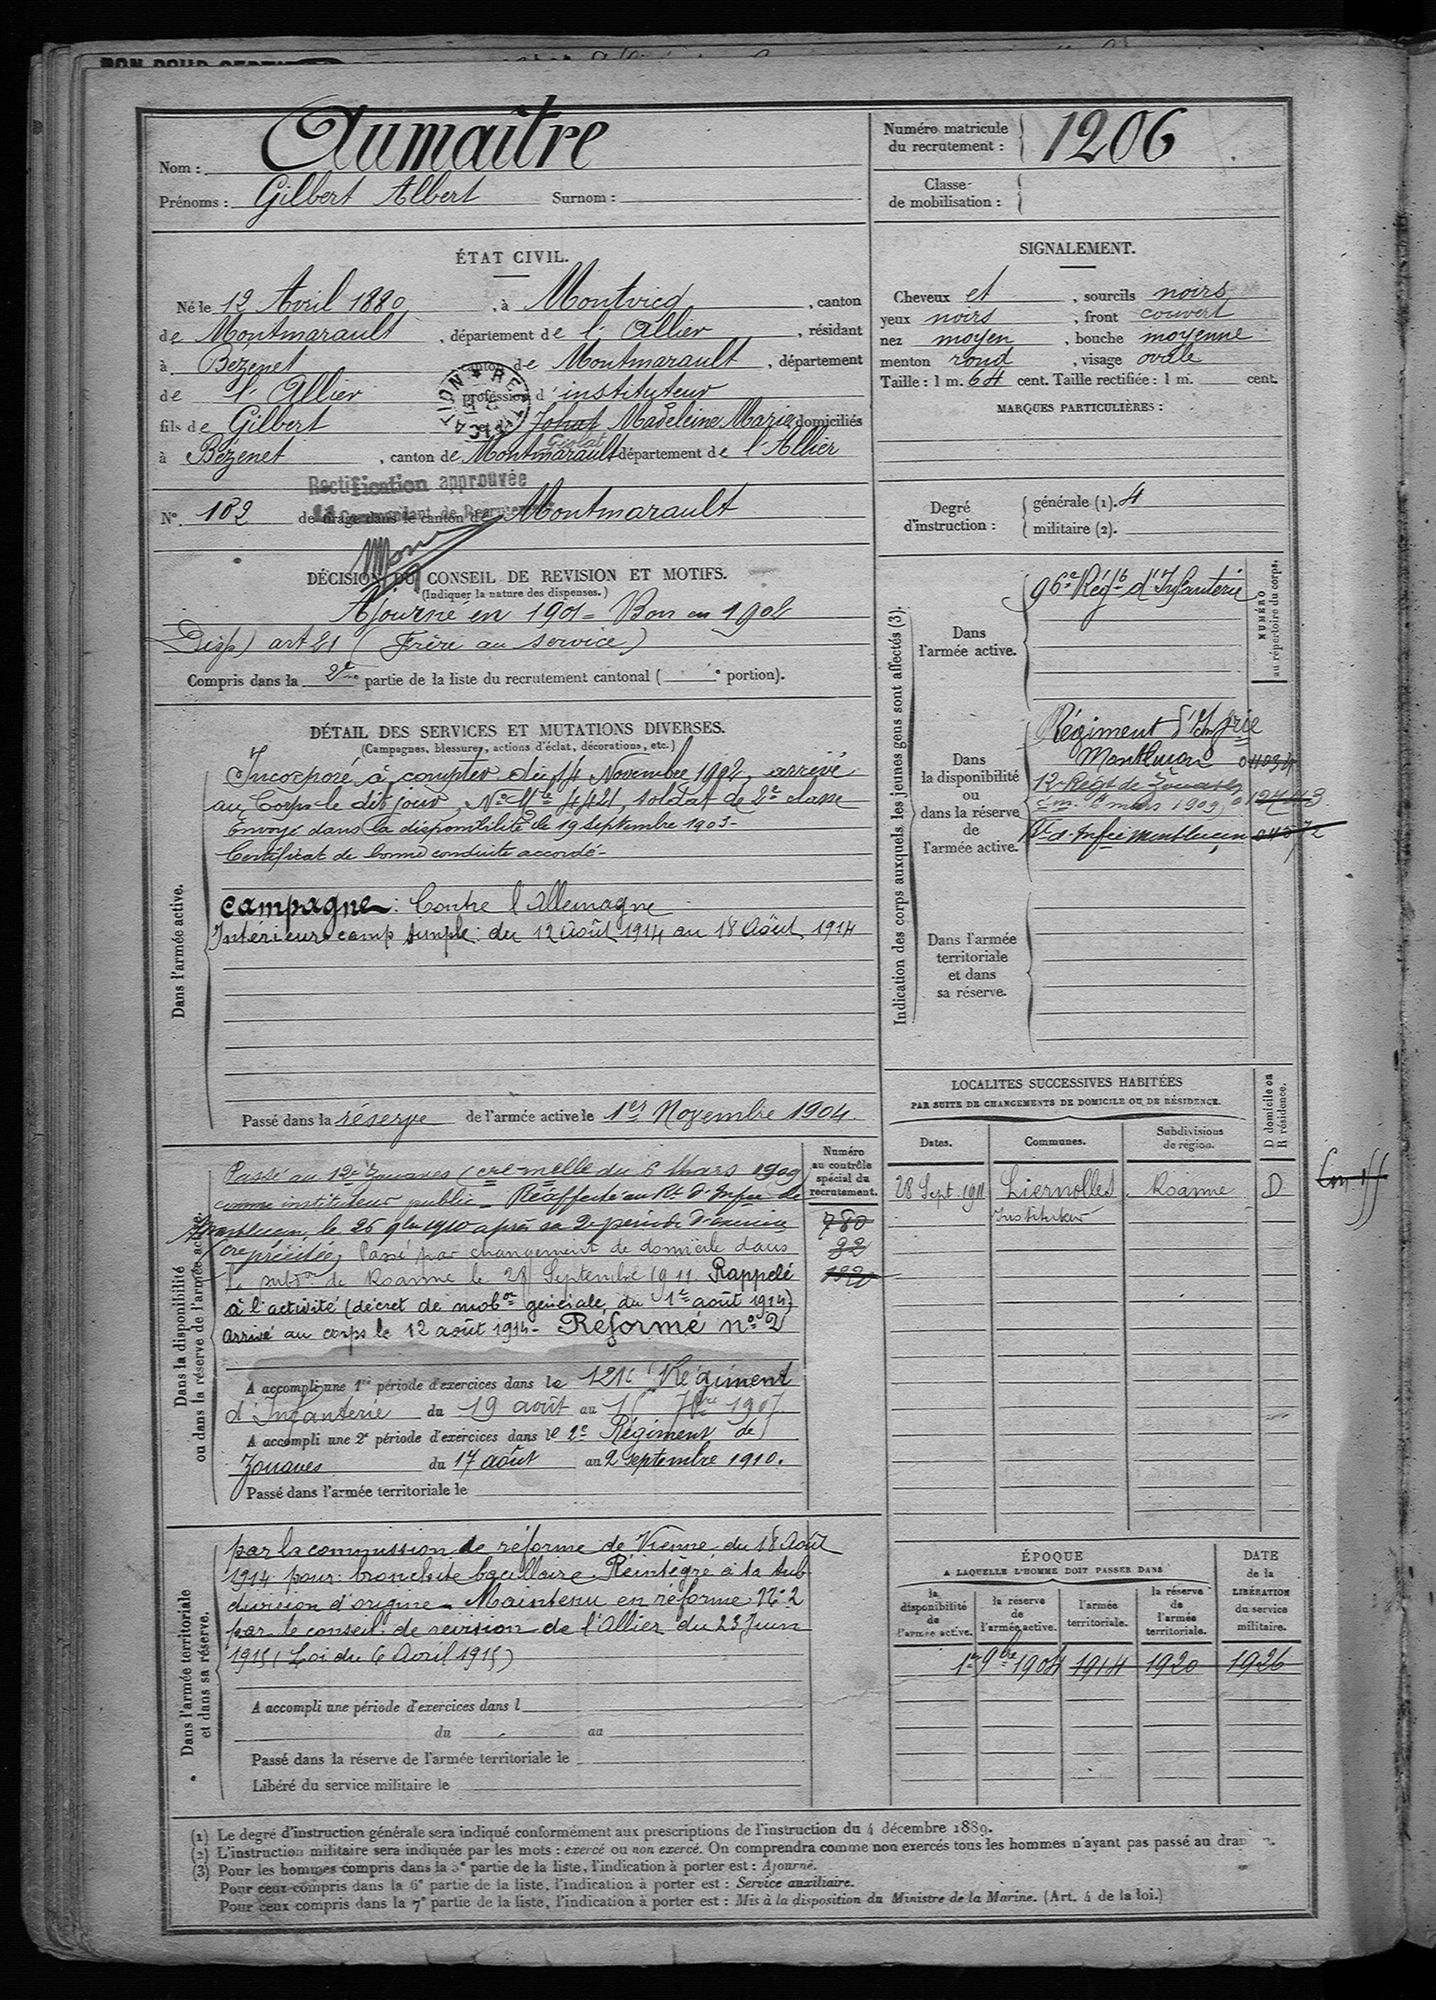 Nom : Aumaître
Prénoms : Gilbert Albert Surnom :
Numéro matricule du recrutement : 1206
Classe de mobilisation :
ÉTAT CIVIL.
Né le 12 Avril 1880, à Montvicq, canton
de Montmarault, département de l'Allier, résidant
à Bezenet canton de Montmarault, département
de l'Allier profession d'instituteur
fils de Gilbert et de Johat Madeleine Marie domiciliés
Giolat
à Bézenet, canton de Montmarault département de l'Allier
RECTIFICATION
Rectification approuvée
Le Commandant de Recrutement
N° 182 de tirage dans le canton de Montmarault
SIGNALEMENT.
Cheveux et, sourcils noirs
yeux noirs, front couvert
nez moyen, bouche moyenne
menton rond, visage ovale
Taille : 1 m. 64 cent. Taille rectifiée : 1 m. cent.
MARQUES PARTICULIÈRES :
Degré d'instruction :
générale (1). 4
militaire (2).
DÉCISION DU CONSEIL DE REVISION ET MOTIFS.
(Indiquer la nature des dispenses.)
Ajourné en 1901 = Bon en 1902
Disp) art 21 (Frère au service)
Compris dans la 2e partie de la liste du recrutement cantonal ( e portion).
DÉTAIL DES SERVICES ET MUTATIONS DIVERSES.
(Campagnes, blessures, actions d'éclat, décorations, etc.)
Dans l'armée active.
Incorporé à compter du 14 Novembre 1902, arrivé
au Corps le dit jour, No Mle 4421, soldat de 2e classe
Envoyé dans la disponibilité le 19 Septembre 1903-
Certificat de bonne conduite accordé-
Campagne : Contre l'Allemagne
Intérieur camp simple : du 12 Août 1914 au 18 Août 1914
Passé dans la réserve de l'armée active le 1er Novembre 1904.
Indication des corps auxquels les jeunes gens sont affectés (3).
NUMÉRO au répertoire du corps.
Dans l'armée active.
96e Régt d'Infanterie
Dans la disponibilité ou dans la réserve de l'armée active.
Régiment d'Infrie
Montluçon
12e Régt de Zouaves
cm. 6 mars 1909
Rt d'Infie Montluçon
Dans l'armée territoriale et dans sa réserve.
LOCALITES SUCCESSIVES HABITÉES
PAR SUITE DE CHANGEMENTS DE DOMICILE OU DE RÉSIDENCE.
Dates. Communes. Subdivisions de région. D domicile ou R résidence.
28 Sept 1911 Liernolles Roanne D
Instituteur
Dans la disponibilité ou dans la réserve de l'armée active.
Numéro au contrôle spécial du recrutement.
780
92
Passé au 12e Zouaves (cre melle du 6 Mars 1909
comme instituteur public - Réaffecté au Rt d'Infie de
Montluçon, le 26 9bre 1910 après sa 2e période d'exercice
(cre précitée) Passé par changement de domicile dans
la subon de Roanne le 28 Septembre 1911. Rappelé
à l'activité (décret de mobon générale du 1er août 1914)
arrivé au corps le 12 août 1914 - Réformé no 2
A accompli une 1re période d'exercices dans le 121e Régiment
d'Infanterie du 19 août au 15 7bre 1907.
A accompli une 2e période d'exercices dans le 2e Régiment de
Zouaves du 17 août au 2 septembre 1910.
Passé dans l'armée territoriale le
Dans l'armée territoriale et dans sa réserve.
par la commission de réforme de Vienne du 18 Août
1914 pour : bronchite bacillaire. Réintégré à la sub
division d'origine - Maintenu en réforme No 2
par le conseil de révision de l'Allier du 23 Juin
1915 (Loi du 6 Avril 1915)
A accompli une période d'exercices dans l
du au
Passé dans la réserve de l'armée territoriale le
Libéré du service militaire le
ÉPOQUE
A LAQUELLE L'HOMME DOIT PASSER DANS
DATE de la LIBÉRATION du service militaire.
la disponibilité de l'armée active. la réserve de l'armée active. l'armée territoriale. la réserve de l'armée territoriale.
1er 9bre 1904 1914 1920 1926
(1) Le degré d'instruction générale sera indiqué conformément aux prescriptions de l'instruction du 4 décembre 1889.
(2) L'instruction militaire sera indiquée par les mots : exercé ou non exercé. On comprendra comme non exercés tous les hommes n'ayant pas passé au drapeau.
(3) Pour les hommes compris dans la 5e partie de la liste, l'indication à porter est : Ajourné.
Pour ceux compris dans la 6e partie de la liste, l'indication à porter est : Service auxiliaire.
Pour ceux compris dans la 7e partie de la liste, l'indication à porter est : Mis à la disposition du Ministre de la Marine. (Art. 4 de la loi.)